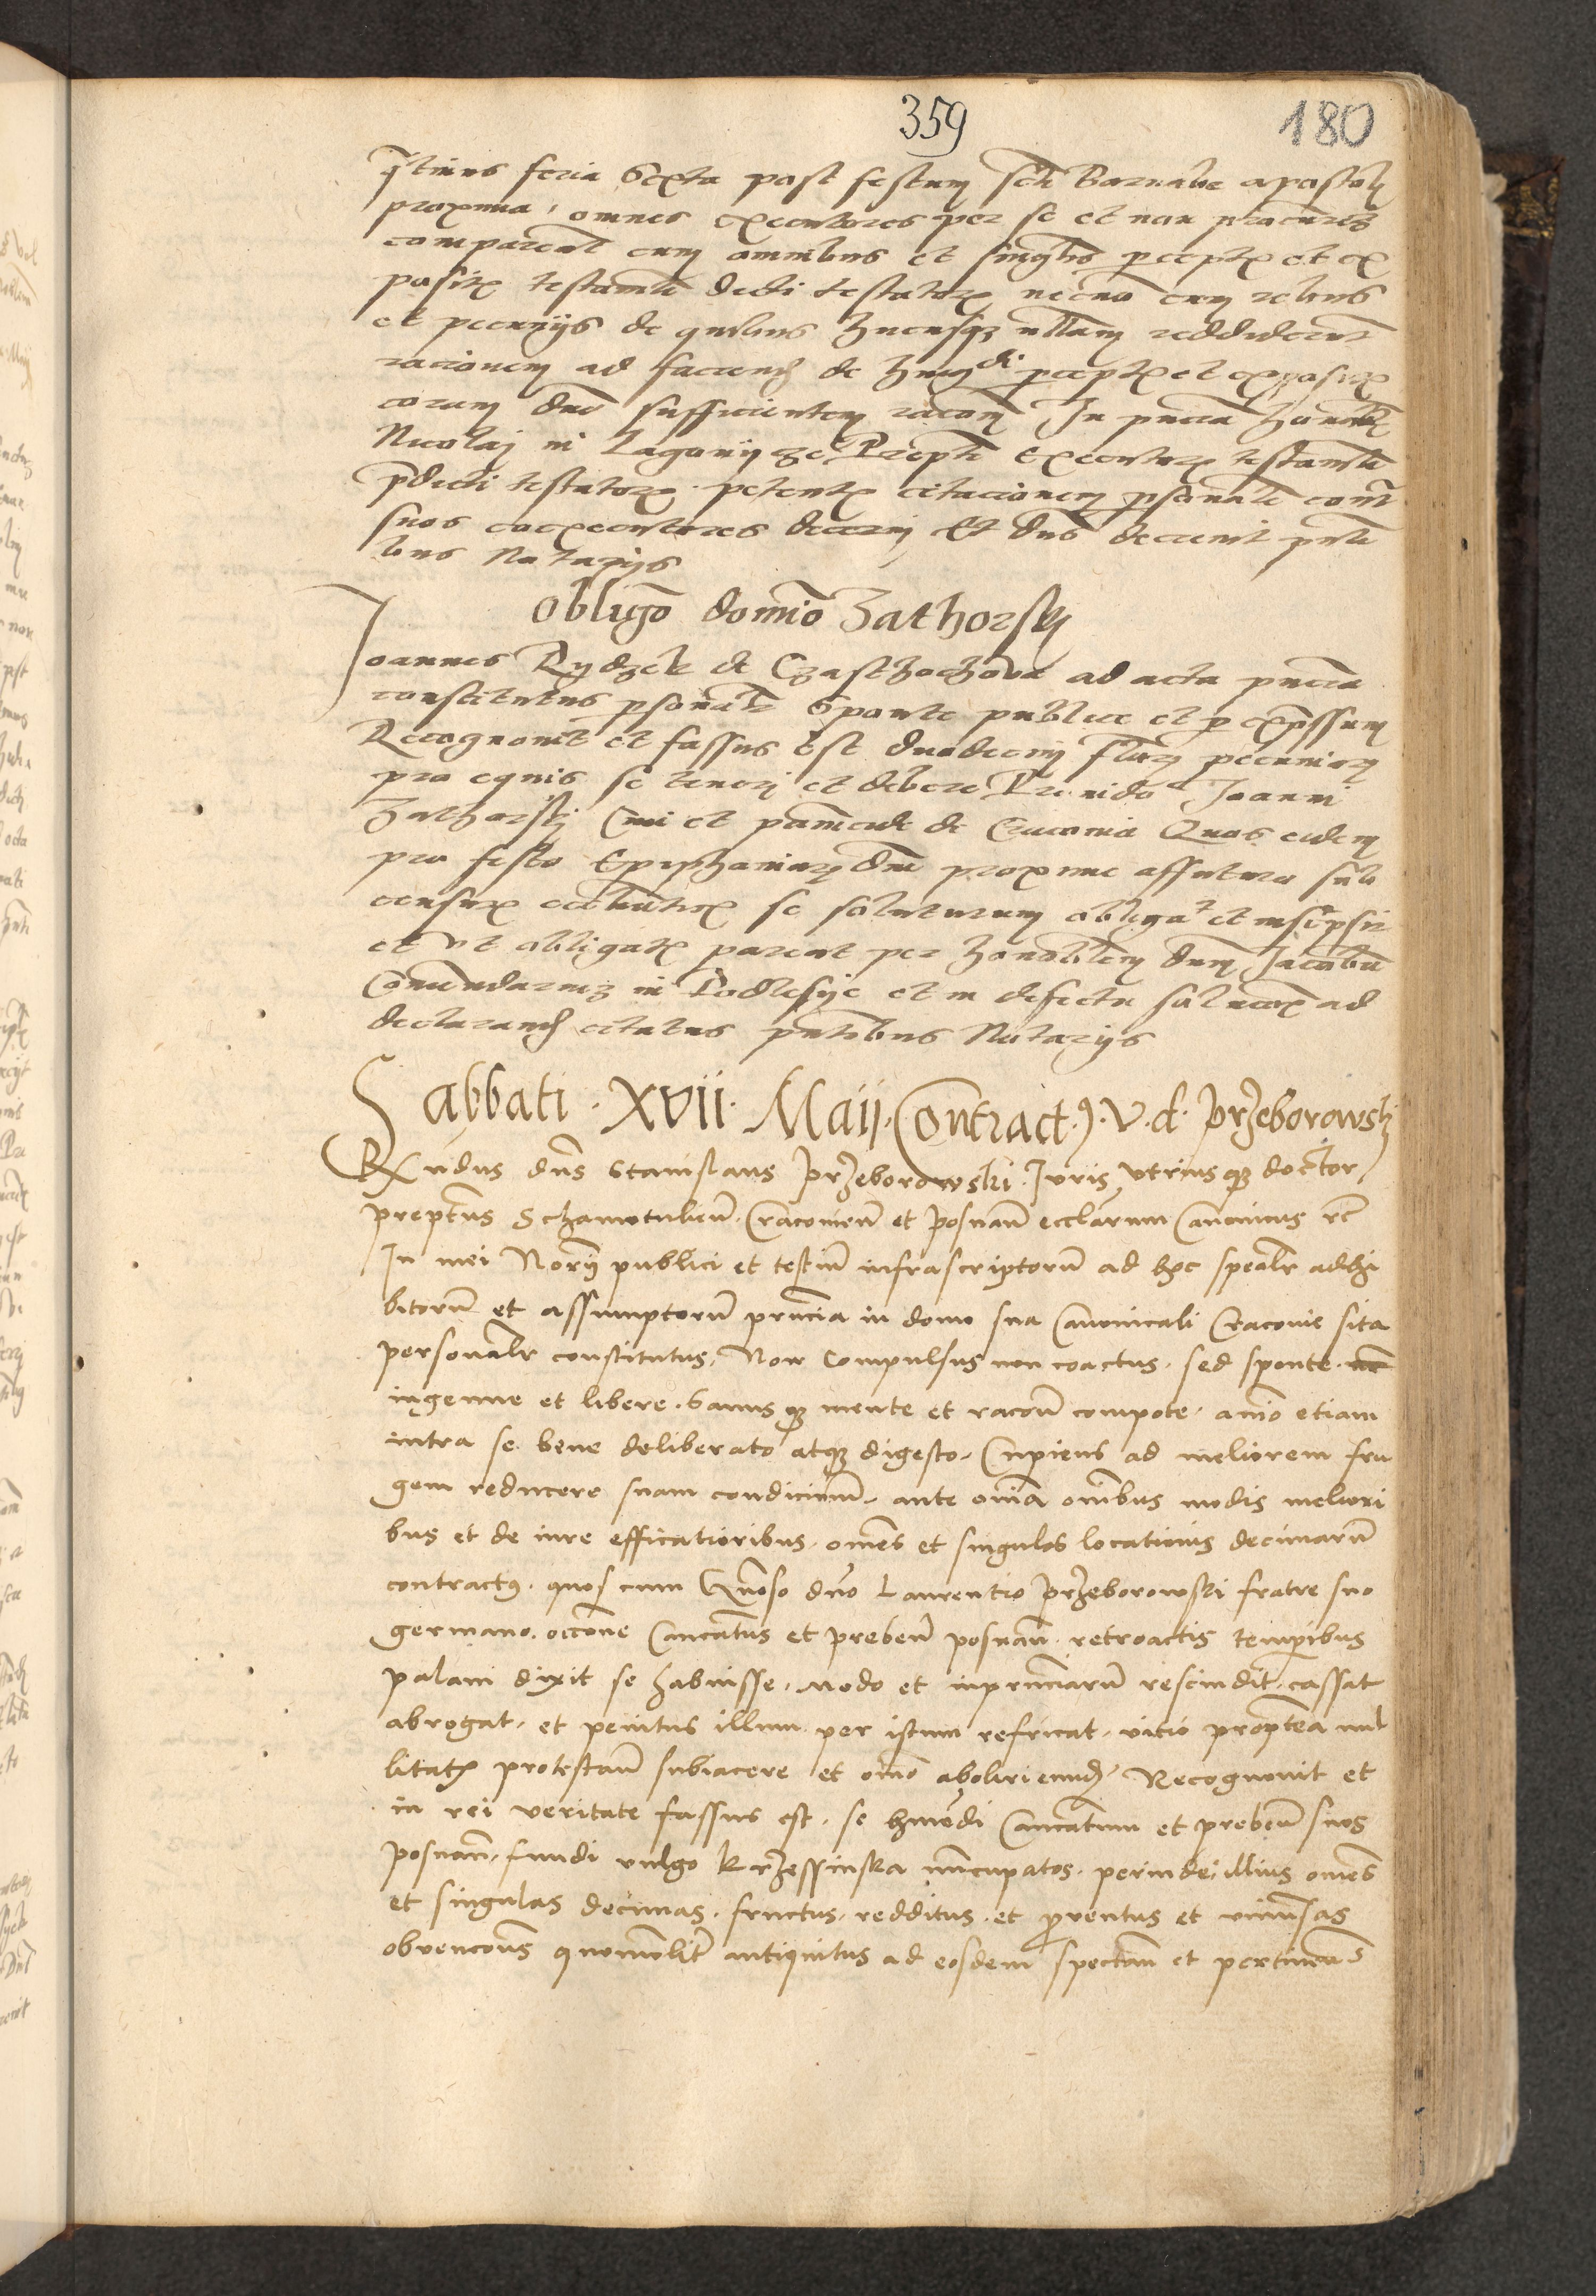 359
180
feria Sexta post festum scti Barnabe apostoli
proxima, omnes executores per se et non
compareat cum omnibus et singulis perceptis et ex
positis testamti dicti testatoris necno cum rebus
et pecunijs de quibus hucusqz nullam reddiderunt
racionem ad faciend de hmoi perceptis et expositis
coram dno sufficientem racom In pncia honorabilis
Nicolaj in executoris testamti
pdicti testatoris petentis citacionem psonale contra
suos coexecutores decerni Et dns decrevit pntibus
bus Notarijs
obligo domino Zathorskj
Joannes Rydzek de ad acta pncia
constitutus psonalr Sponte publice et p expssum
Recognovit et fassus est duodecim flor pecuniarum
pro equis se teneri et debere Provido Joanni
Zathorskj Civi et de Cracovia Quos eidem
pro festo Epiphaniarum dni proxime affuturo sub
censuris eccliasticis se soluturum obligavit et inscripsit
et ut obligatus pareat per honorabilem dnm Jacobum
Comendariuz in Podlesije et in defectu solucois ad
declarand citatus pntibus Notarijs
Sabbati · XVII · Maij · Contract9 · V · d · Przeborowskj
Rndus dns Stanislaus Przeborowski Juris utriusqz doctor
preptus Schamotulien Cracovien et Posnan ecclarum Canonicus etc
In mei Norij publici et testium infrascriptorum ad hoc spealr adhi
bitorum et assumptorum pruncia in domo sua Canonicali Cracovie sita
personalr constitutus, Non Compulsus non coactus, sed sponte
ingenue et libere, Sanus qz mente et racoun compote, animo etiam
intra se bene deliberato atqz digesto, Cupiens ad meliorem fru
gem reducere suam condicionem, ante omnia omnibus modis meliori
bus et de iure efficatioribus, omnes et singulos locationis decimarum
contractus, quos cum Gnoso dno Laurentio Przeborowski fratre suo
germano, occone Cancatus et preben posnan retroactis temporibus
palam dixit se habuisse, modo et inprunciarum rescindit, cassat
abrogat, et penitus illum per istum refricat, vitio propterea nul
litatis protestan subiacere et omnino Recognovit et
in rei veritate fassus est, se hmodi Cancatum et preben suos
posnan, fundi vulgo Krzessinska nuncupatos, perinde illius omnes
et singulas decimas, fructus, redditus, et proventus et universas
obvencons quomolibet antiquitus ad eosdem spectan et pertinen